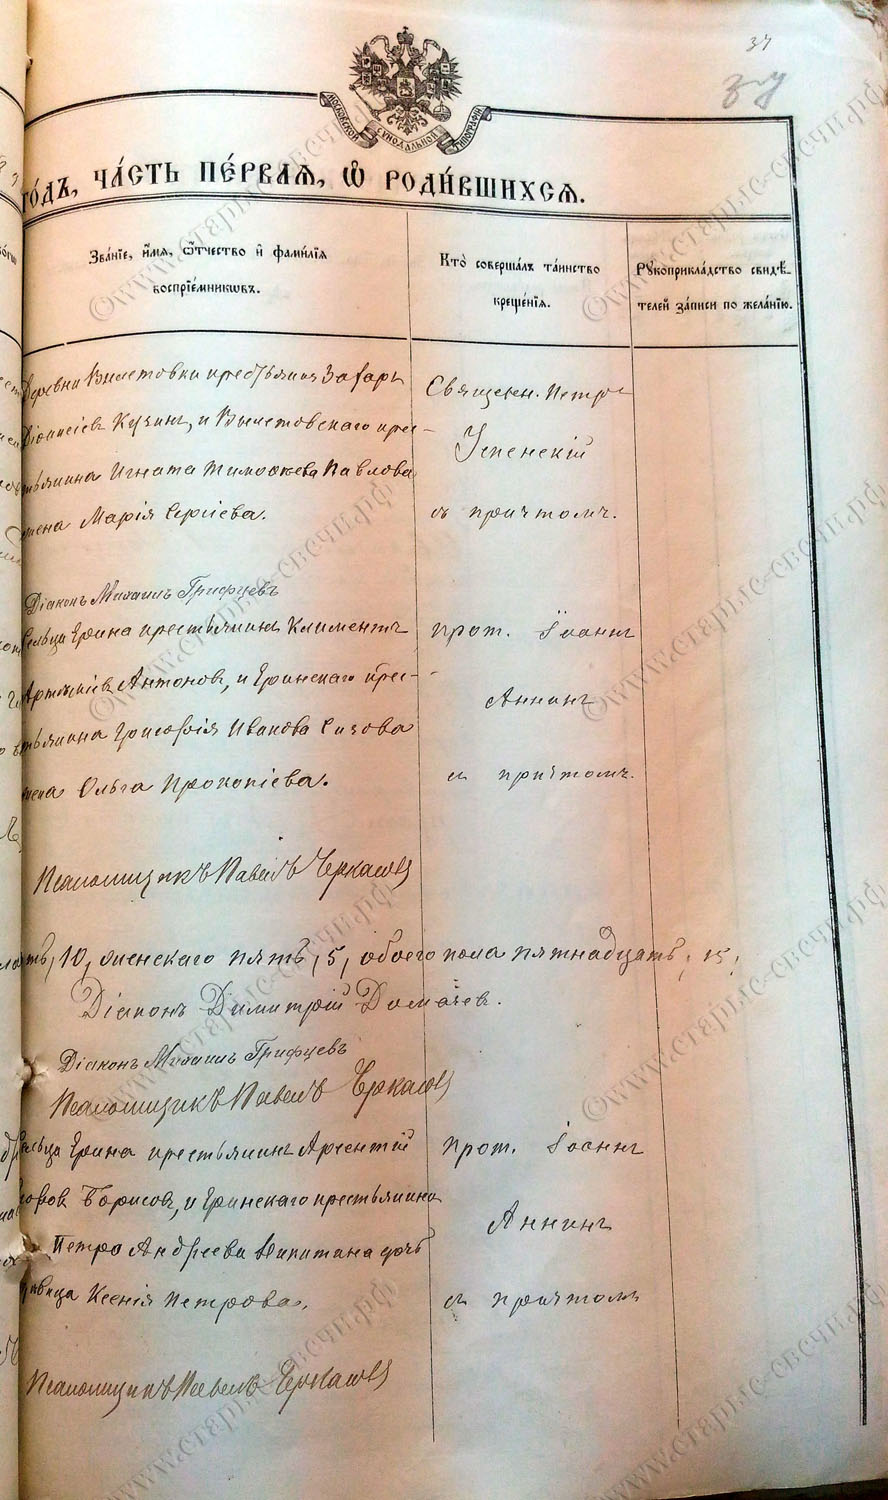 37
МОСКОВСКОЙ СѴНОДАЛЬНОЙ ТИПОГРАФІИ
го́дъ, ча́сть пе́рваѧ, ѡ҆ роди́вшихсѧ.
Зва́нїе, и҆́мѧ, ѻ҆́тчество и҆ фами́лїѧ
воспрїе́мниковъ.
Кто̀ соверша́лъ та́инство
креще́нїѧ.
Рꙋкоприкла́дство свидѣ́-
телей за́писи по жела́нїю.
Деревни крестьянинъ Захаръ
Діонисіевъ Кузинъ, и Вылетовскаго крес-
тьянина Игната Тимофеева Павлова
жена Марія Сергіева.
Священ. Петръ
Успенскій
съ причтомъ.
Діаконъ Михаилъ Грифцевъ
Сельца Ерина крестьянинъ Климентъ
Антоновъ, и Еринскаго крес-
тьянина Григорія Иванова Сизова
жена Ольга Прокопіева.
прот. Іоаннъ
Аннинъ
съ причтомъ.
Псаломщикъ Павелъ Черкасовъ
10, женскаго пять, 5, обоего пола пятнадцать, 15,
Діаконъ Димитрій Домачев.
Діаконъ Михаилъ Грифцевъ
Псаломщикъ Павелъ Черкасовъ
Сельца Ерина крестьянинъ Арсентій
Борисовъ, и Еринскаго крестьянина
Петра Андреева Никитина дочь
девица Ксенія Петрова.
прот. Іоаннъ
Аннинъ
съ причтомъ
Псаломщикъ Павелъ Черкасовъ
©www.старые-свечи.рф